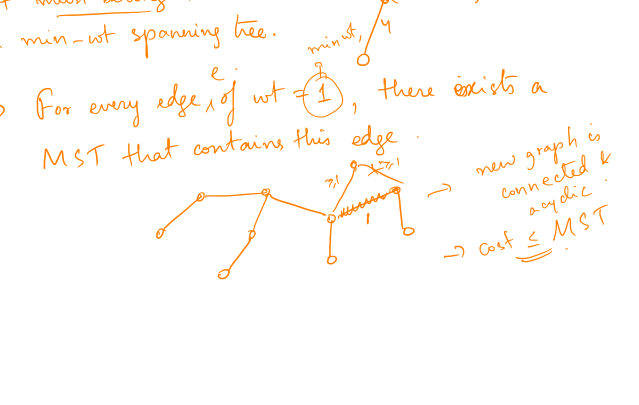 min-wt spanning tree.
4
min wt,
For every edge e, of wt = 1, there exists a
MST that contains this edge.
≥1
≥1
1
→ new graph is
connected &
acyclic.
→ cost ≤ MST